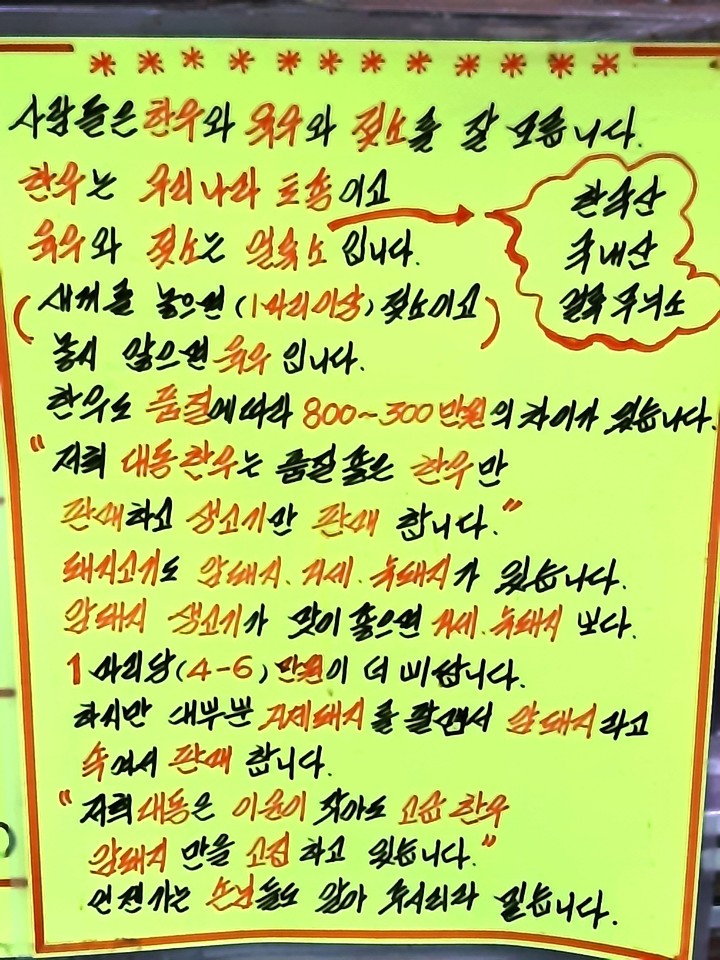 * * * * * * * * * * * *
사람들은 한우와 육우와 젖소를 잘 모릅니다.
한우는 우리나라 토종이고
육우와 젖소는 얼룩소 입니다.
한국산
국내산
얼룩무늬소
(새끼를 놓으면 (1마리이상) 젖소이고)
놓지 않으면 육우 입니다.
한우도 품질에따라 800~300만원의 차이가 있습니다.
"저희 대동한우는 품질좋은 한우만
판매하고 생고기만 판매 합니다."
돼지고기도 암돼지. 거세. 숫돼지가 있습니다.
암돼지 생고기가 맛이좋으면 거세. 숫돼지 보다.
1마리당 (4-6)만원이 더 비쌉니다.
하지만 대부분 거제돼지를 팔면서 암돼지라고
속여서 판매 합니다.
"저희대동은 이윤이 작아도 고급한우
암돼지 만을 고집하고 있습니다."
언젠가는 손님들도 알아 주시리라 믿습니다.